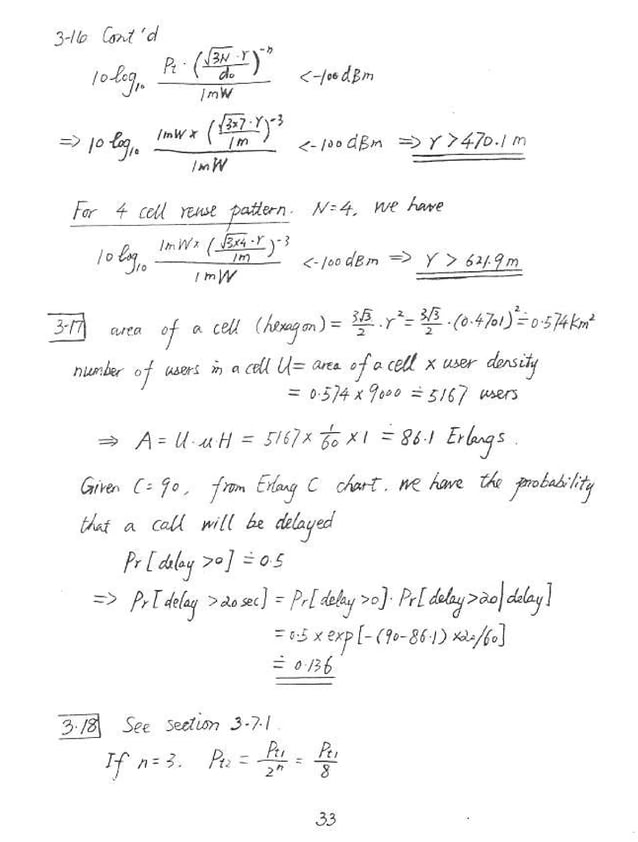 3-16 Cont'd
10 log₁₀ Pt · (√3N · r / d₀)⁻ⁿ / 1mW < -100 dBm
⇒ 10 log₁₀ 1mW × (√3×7 · r / 1m)⁻³ / 1mW < -100 dBm ⇒ r > 470.1 m
For 4 cell reuse pattern. N=4, we have
10 log₁₀ 1mW × (√3×4 · r / 1m)⁻³ / 1mW < -100 dBm ⇒ r > 621.9 m
3-17 area of a cell (hexagon) = 3√3/2 · r² = 3√3/2 · (0.4701)² ≐ 0.574 km²
number of users in a cell U = area of a cell × user density
= 0.574 × 9000 ≐ 5167 users
⇒ A = U · u H = 5167 × 1/60 × 1 ≐ 86.1 Erlangs.
Given C = 90, from Erlang C chart. we have the probability
that a call will be delayed
Pr [delay >0] ≐ 0.5
⇒ Pr [delay >20 sec] = Pr[delay >0] · Pr[delay>20|delay]
= 0.5 × exp [-(90-86.1) ×20/60]
≐ 0.136
3.18 See section 3-7.1.
If n=3. Pt2 = Pt1/2ⁿ = Pt1/8
33